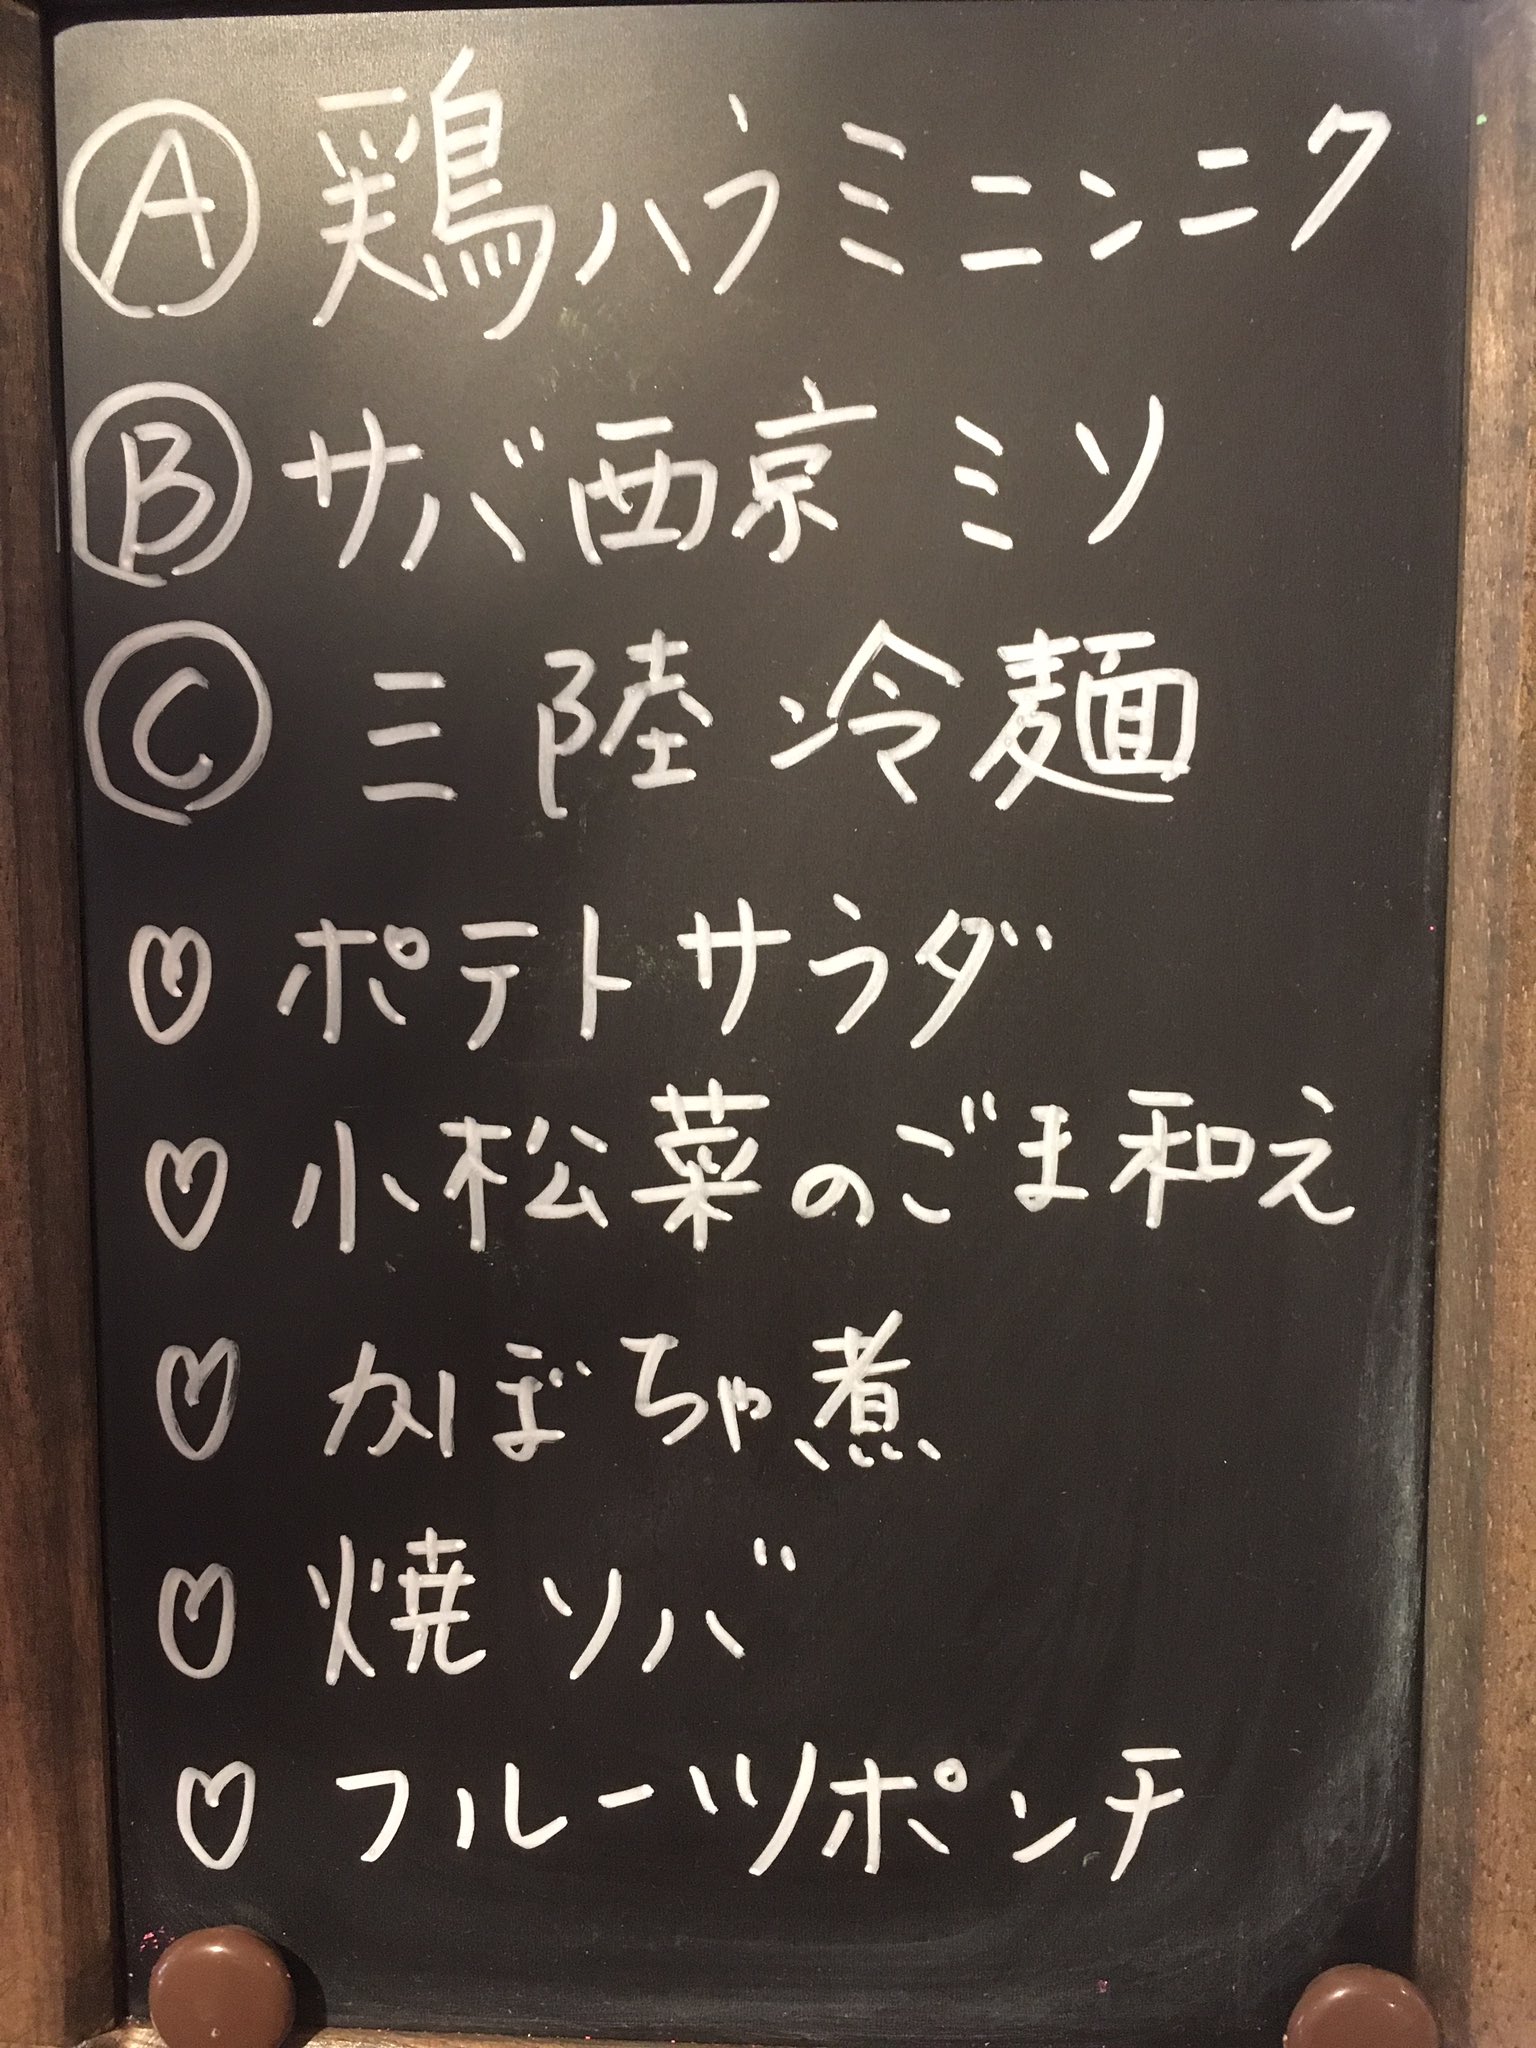 Ⓐ 鶏ハラミニンニク
Ⓑ サバ西京ミソ
Ⓒ 三陸冷麺
♡ ポテトサラダ
♡ 小松菜のごま和え
♡ かぼちゃ煮
♡ 焼ソバ
♡ フルーツポンチ